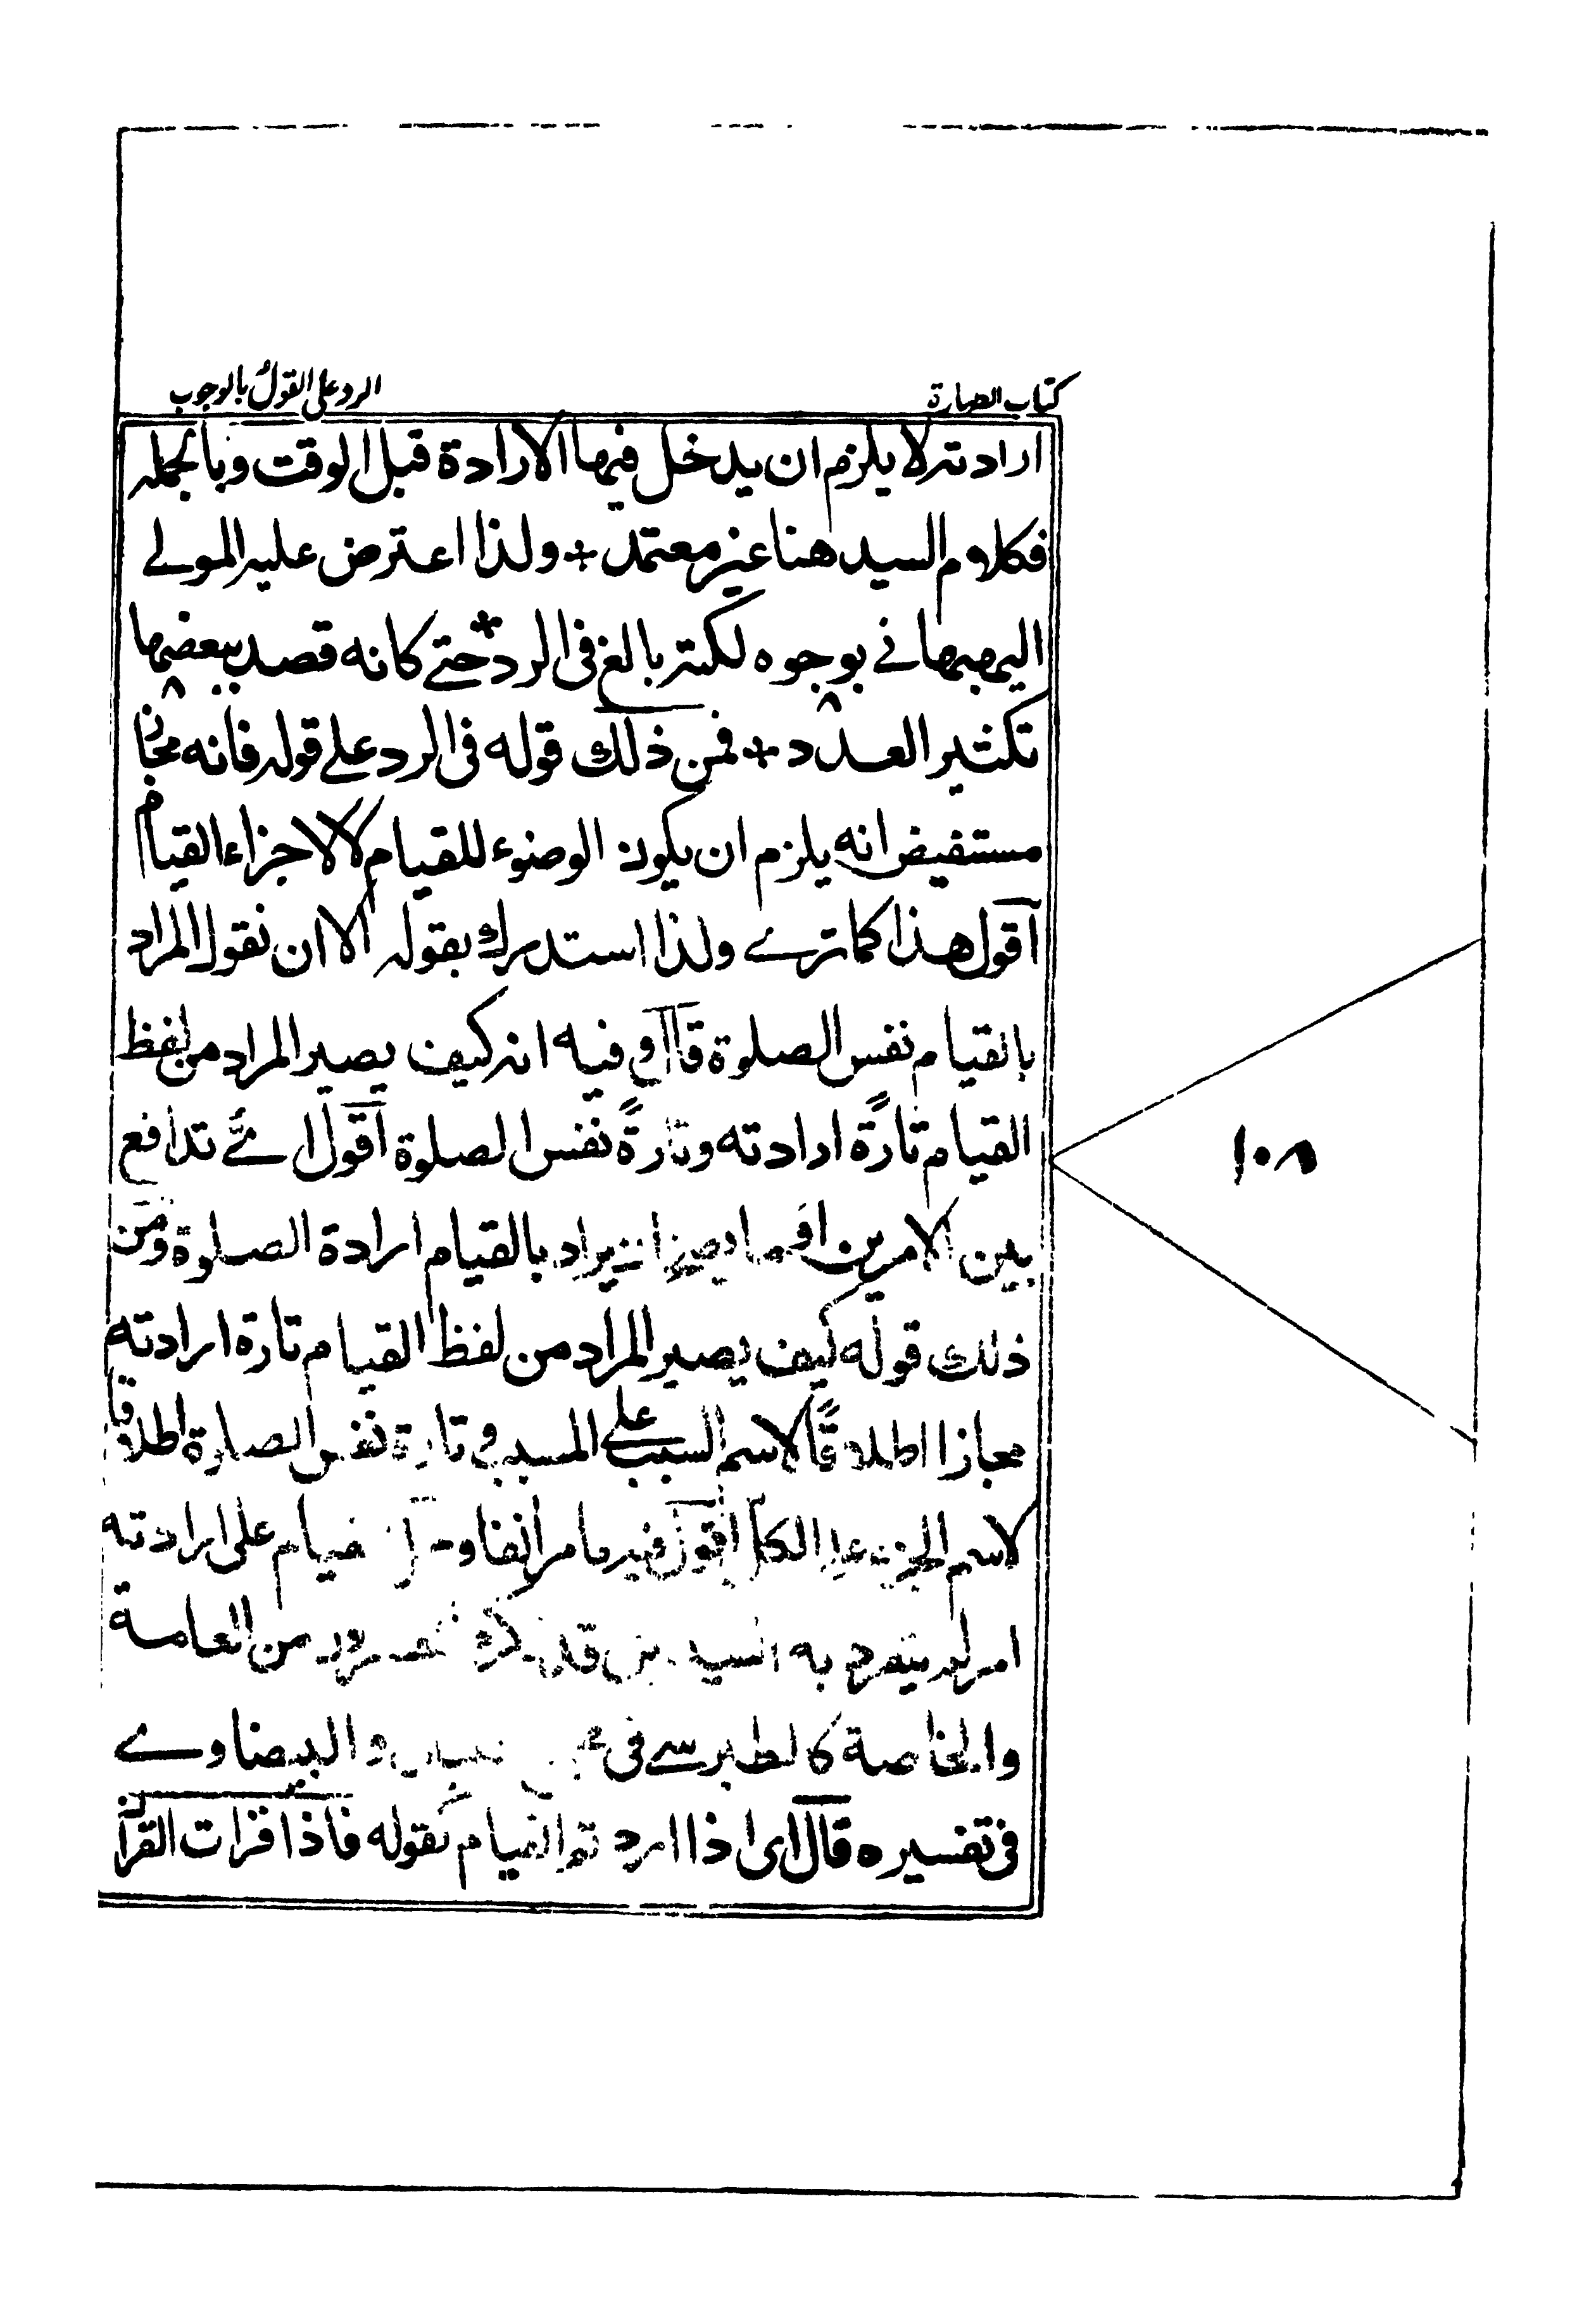 كتاب الطهارة
الرد على القول بالوجوب
ارادته لا يلزم ان يدخل فيها الارادة قبل الوقت وبالجمله
فكلام السيد هنا غير معتمد + ولذا اعترض عليه المولے
البهبهانے بوجوه لكنه بالغ فى الرد * حتے كانه قصد ببعضها
تكثير العدد + فمن ذلك قوله فى الرد علے قوله فانه مجاز
مستفيض انه يلزم ان يكون الوضوء للقيام لا لاجزاء القيام
اقول هذا كما ترے ولذا استدرك بقوله الا ان نقول المراد
بالقيام نفس الصلوة قال وفيه انه كيف يصير المراد من لفظ
القيام تارةً ارادته وتارةً نفس الصلوة اقول اےّ تدافع
بين الامرين يراد بالقيام ارادة الصلوة ومن
ذلك قوله كيف يصير المراد من لفظ القيام تارة ارادته
مجازا اطلاقًا لاسم السبب علے المسبب وتارة نفس الصلوة اطلاقا
لاسم الجزء على الكل اقول فيه ما مر انفا على ارادته
امر لم يتفرد به السيد بل قد من العامة
والخاصة كالطبرسے فى والبيضاوے
فى تفسيره قال اى اذا اردتم القيام كقوله فاذا قرات القرآن
١٥٨